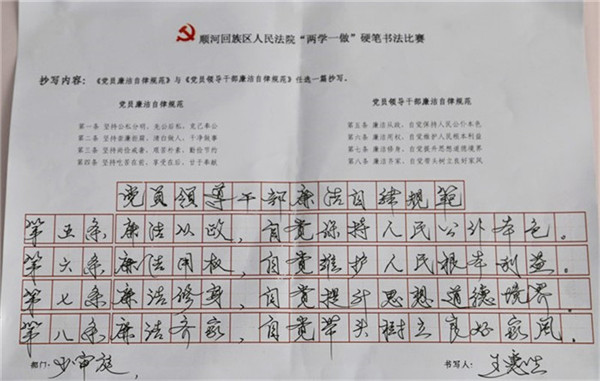 顺河回族区人民法院“两学一做”硬笔书法比赛
抄写内容：《党员廉洁自律规范》与《党员领导干部廉洁自律规范》任选一篇抄写。
党员廉洁自律规范
第一条 坚持公私分明，先公后私，克己奉公
第二条 坚持崇廉拒腐，清白做人，干净做事
第三条 坚持尚俭戒奢，艰苦朴素，勤俭节约
第四条 坚持吃苦在前，享受在后，甘于奉献
党员领导干部廉洁自律规范
第五条 廉洁从政，自觉保持人民公仆本色
第六条 廉洁用权，自觉维护人民根本利益
第七条 廉洁修身，自觉提升思想道德境界
第八条 廉洁齐家，自觉带头树立良好家风
党员领导干部廉洁自律规范
第五条廉洁从政，自觉保持人民公仆本色。
第六条廉洁用权，自觉维护人民根本利益。
第七条廉洁修身，自觉提升思想道德境界。
第八条廉洁齐家，自觉带头树立良好家风。
部门：少审庭，
书写人：王